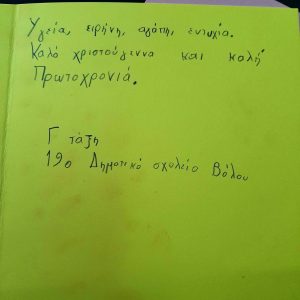 Υγεία, ειρήνη, αγάπη, ευτυχία.
Καλό χριστούγεννα και καλή
Πρωτοχρονιά.
Γ τάξη
19ο Δημοτικό σχολείο Βόλου